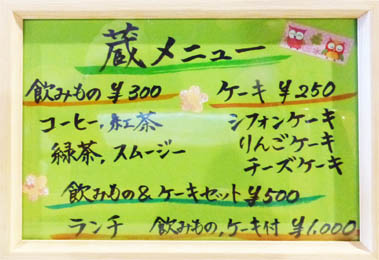 蔵メニュー
飲みもの ¥300
コーヒー, 紅茶
緑茶, スムージー
ケーキ ¥250
シフォンケーキ
りんごケーキ
チーズケーキ
飲みもの&ケーキセット¥500
ランチ 飲みもの,ケーキ付 ¥1,000